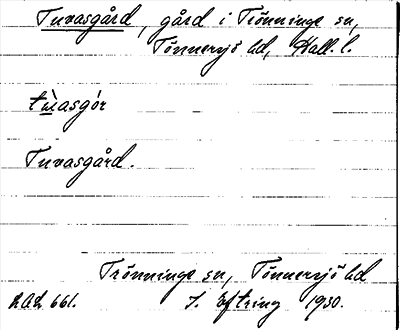 Tuvasgård, gård i Trönninge sn,
Tönnersjö hd, Hall. l.
Tuvasgård.
Trönninge sn, Tönnersjö hd
J. Eftring 1930.